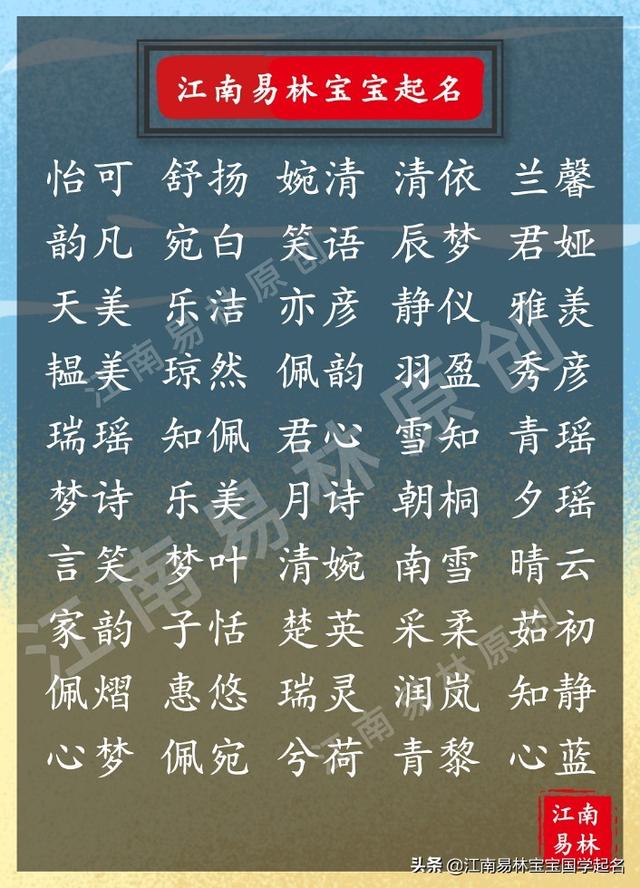 江南易林宝宝起名
怡可 舒扬 婉清 清依 兰馨
韵凡 宛白 笑语 辰梦 君娅
天美 乐洁 亦彦 静仪 雅羡
韫美 琼然 佩韵 羽盈 秀彦
瑞瑶 知佩 君心 雪知 青瑶
梦诗 乐美 月诗 朝桐 夕瑶
言笑 梦叶 清婉 南雪 晴云
家韵 子恬 楚英 采柔 茹初
佩熠 惠悠 瑞灵 润岚 知静
心梦 佩宛 兮荷 青黎 心蓝
江南易林原创
江南易林原创
江南易林原创
江南
易林
头条 @江南易林宝宝国学起名